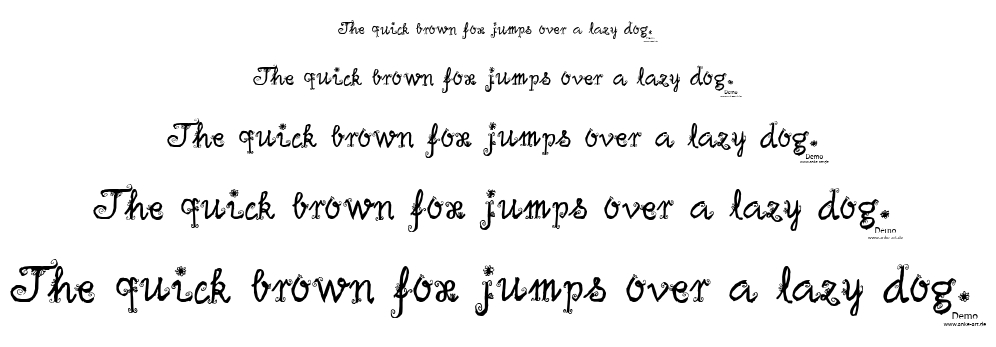 The quick brown fox jumps over a lazy dog.
The quick brown fox jumps over a lazy dog.
Demo
The quick brown fox jumps over a lazy dog.
Demo
www.anke-art.de
The quick brown fox jumps over a lazy dog.
Demo
www.anke-art.de
The quick brown fox jumps over a lazy dog.
Demo
www.anke-art.de